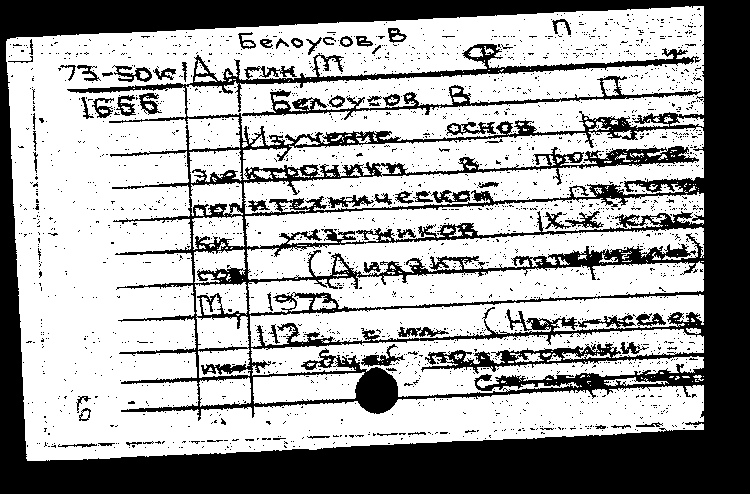 Белоусов, В П
73-50к Адгин, М Ф
1666 Белоусов, В П
Изучение основ радио
электроники в процессе
политехнической подготов
ки участников IX-X клас-
сов (Дидакт. материалы)
М., 1973.
112с. с ил. (Науч.-исслед
ин-т общей педагогики
6